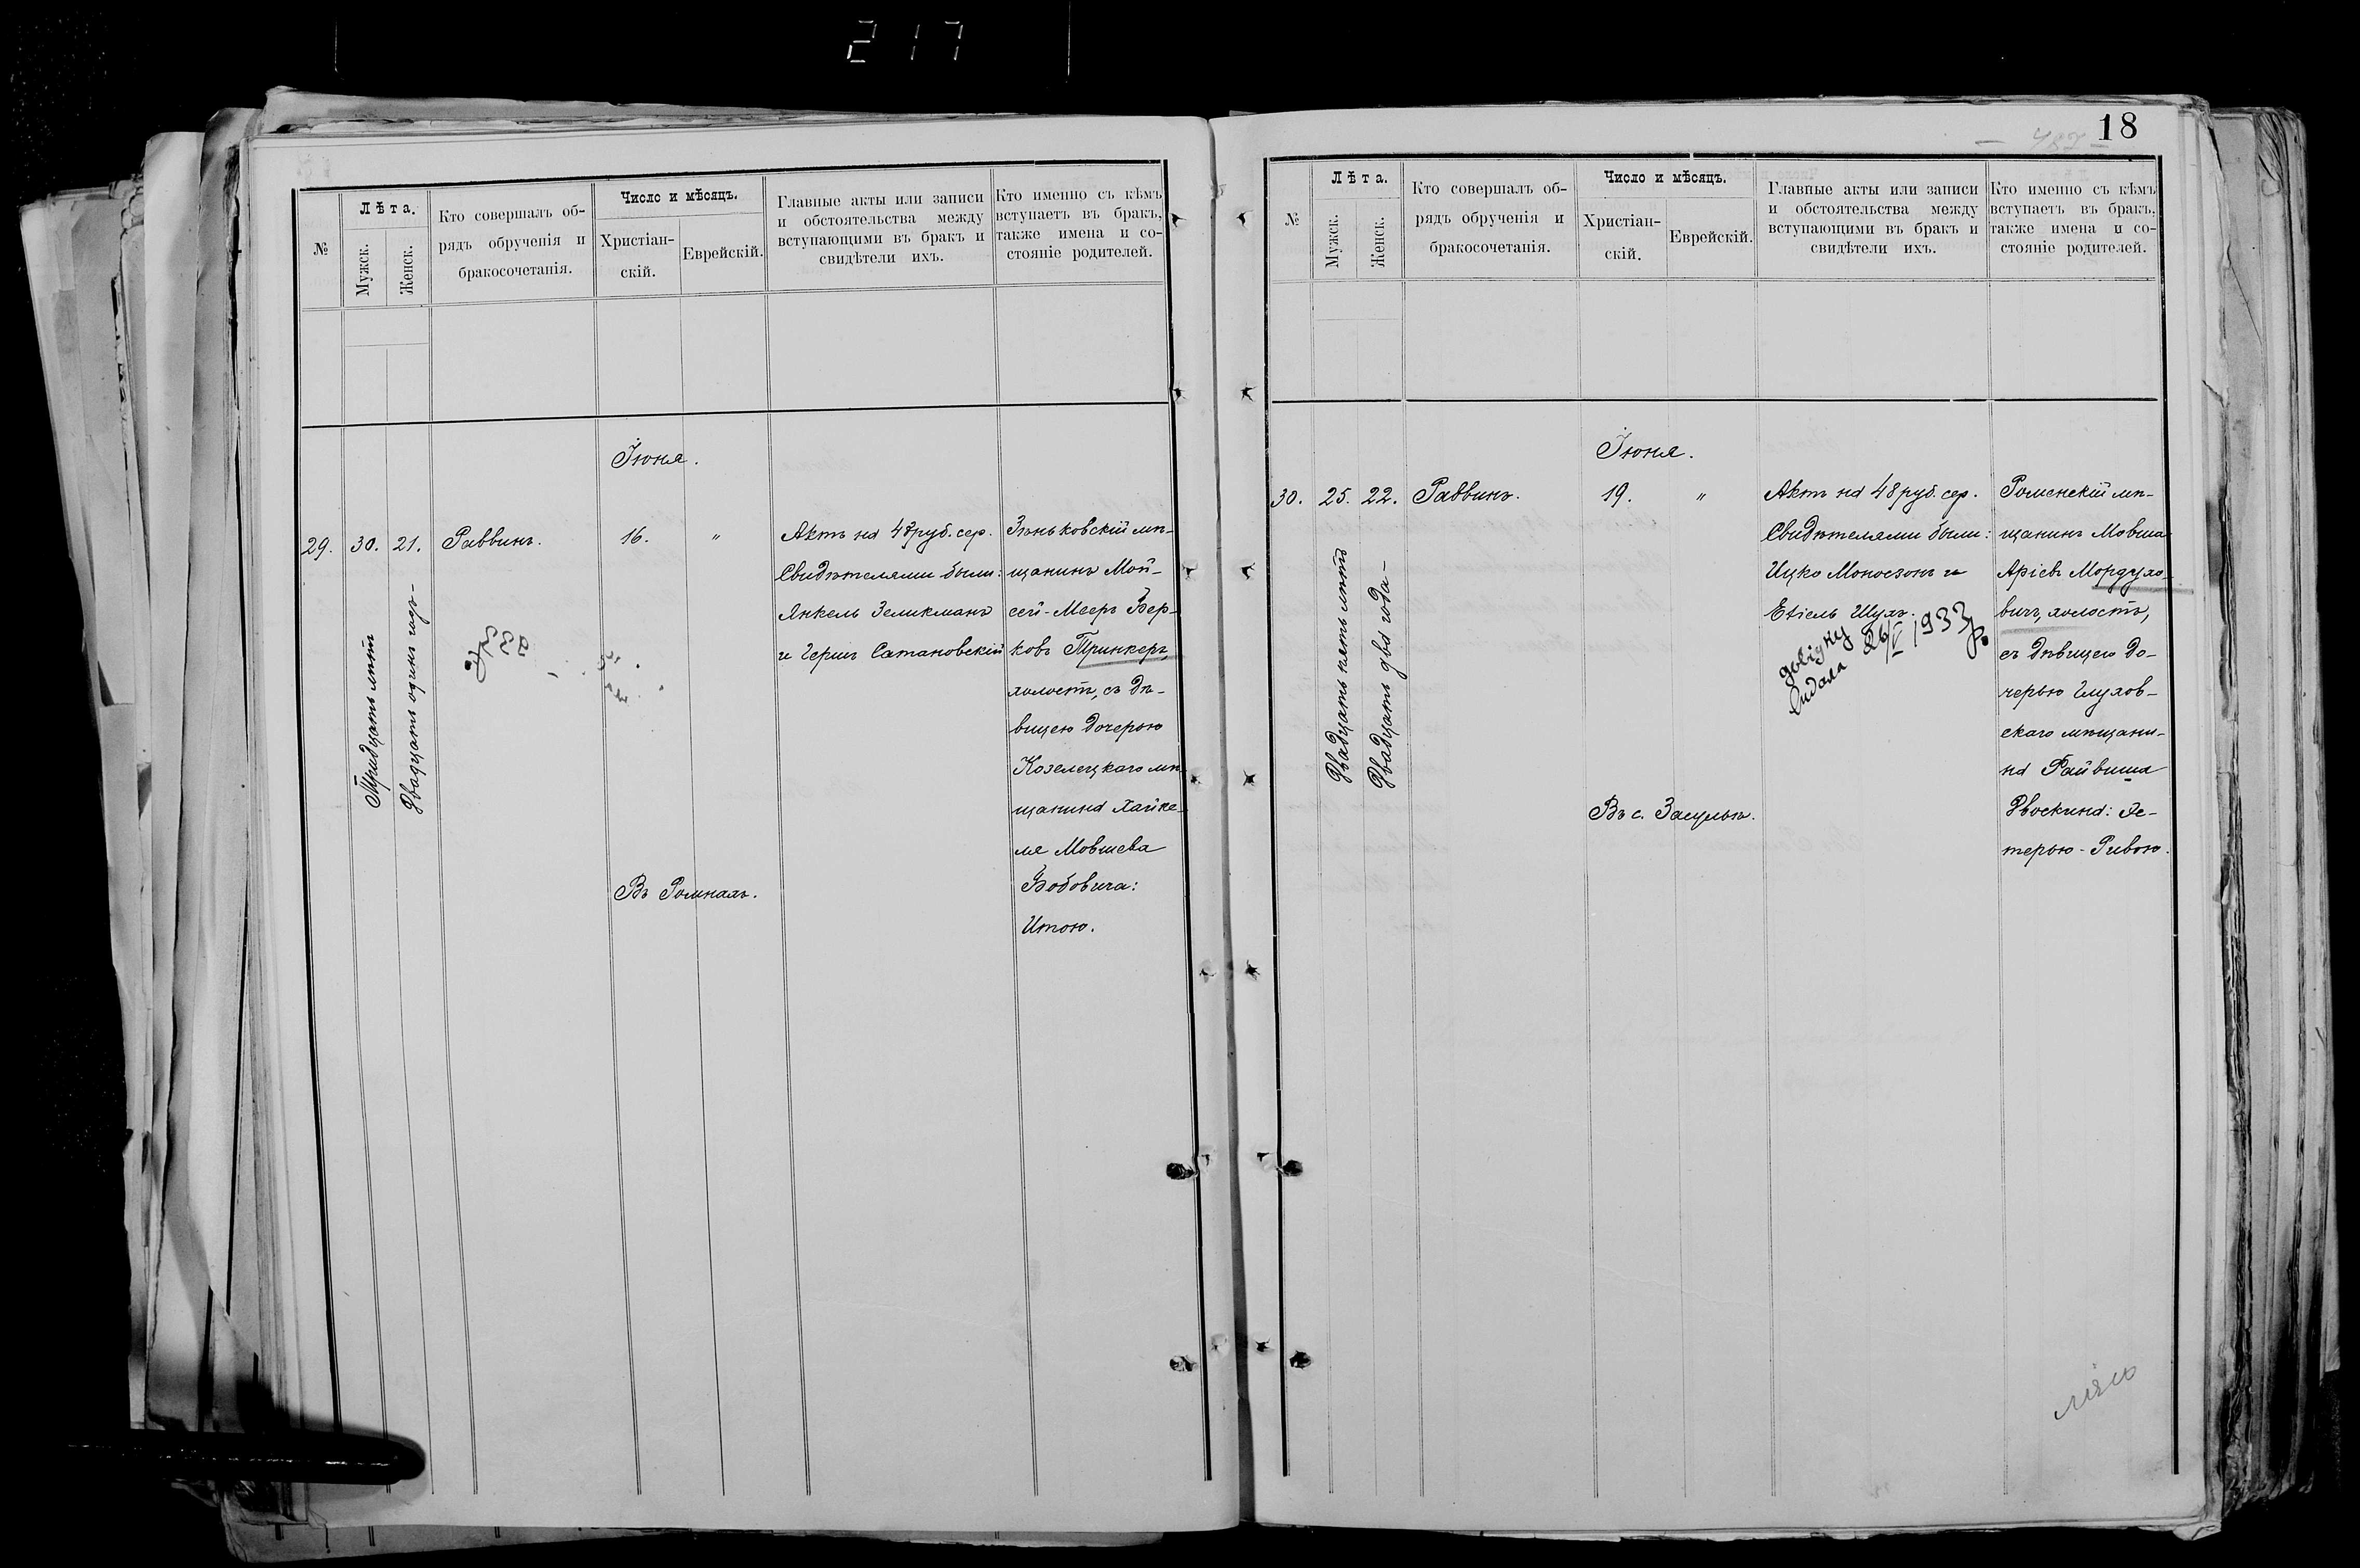 217
№
Лѣта.
Мужск.
Женск.
Кто совершалъ об-
рядъ обрученія и
бракосочетанія.
Число и мѣсяцъ.
Христіан-
скій.
Еврейскій.
Главные акты или записи
и обстоятельства между
вступающими въ бракъ и
свидѣтели ихъ.
Кто именно съ кѣмъ
вступаетъ въ бракъ,
также имена и со-
стояніе родителей.
Іюня.
29.
30.
21.
Тридцать лѣтъ
Двадцать одинъ годъ-
Раввинъ.
16.
"
Въ Ромнахъ.
Актъ на 48 руб. сер.
Свидѣтелями были:
Янкель Зеликманъ
и Гершъ Сатановскій
Зѣньковскій мѣ-
щанинъ Мой-
сей-Мееръ Бер-
ковъ Тринкеръ,
холостъ, съ дѣ-
вицею дочерью
Козелецкаго мѣ-
щанина Хайке-
ля Мовшева
Бобовича:
Итою.
18
№
Лѣта.
Мужск.
Женск.
Кто совершалъ об-
рядъ обрученія и
бракосочетанія.
Число и мѣсяцъ.
Христіан-
скій.
Еврейскій.
Главные акты или записи
и обстоятельства между
вступающими въ бракъ и
свидѣтели ихъ.
Кто именно съ кѣмъ
вступаетъ въ бракъ,
также имена и со-
стояніе родителей.
Іюня.
30.
25.
22.
Двадцать пять лѣтъ
Двадцать два года-
Раввинъ.
19.
"
Въ с. Засульѣ.
Актъ на 48 руб. сер.
Свидѣтелями были:
Ицко Моносзонъ и
Ехіель Шухъ.
довідку
видала 26/V 1933 р.
Роменскій мѣ-
щанинъ Мовша
Аріевъ Мордухо-
вичъ, холостъ,
съ дѣвицею до-
черью Глухов-
скаго мѣщани-
на Райвиша
Двоскина: Эс-
терью-Ривою.